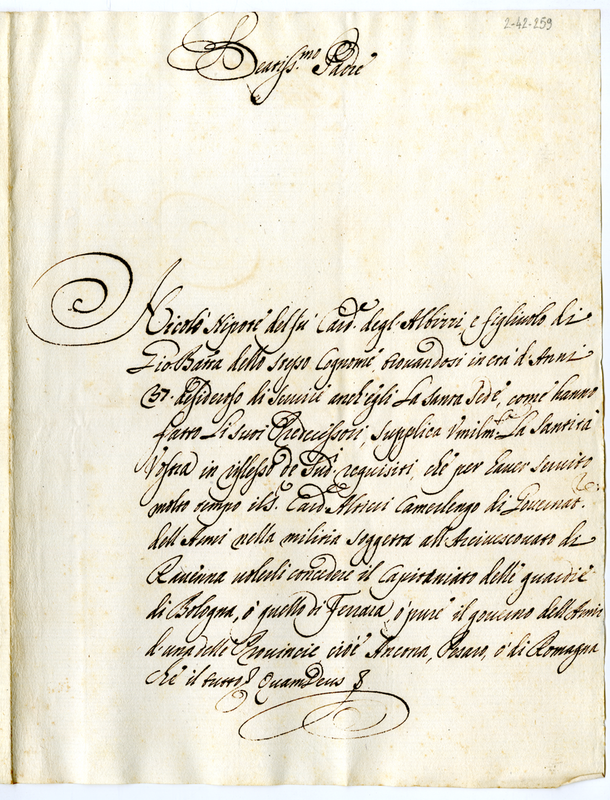 2-42-259
Beatiss.mo Padre
Nicolò Nipote del fù Card.e degl'Albizzi, e figliuolo di
Gio: Batta dello stesso Cognome, trovandosi in età d'Anni
37. desideroso di servire anch'egli la Santa Sede, come hanno
fatto li suoi Predecessori, supplica Umilm.te La Santità
Vostra in riflesso de Sud.i requisiti, che per haver servito
molto tempo il S. Card.e Altieri Camerlengo di Governat.re
dell'Armi nella militia soggetta all'Arcivescovato di
Ravenna volerli concedere il Capitaniato delle guardie
di Bologna, ò quello di Ferrara, ò pure il governo dell'Armi
d'una delle Provincie cioè Ancona, Pesaro, ò di Romagna
che il tutto Quam Deus